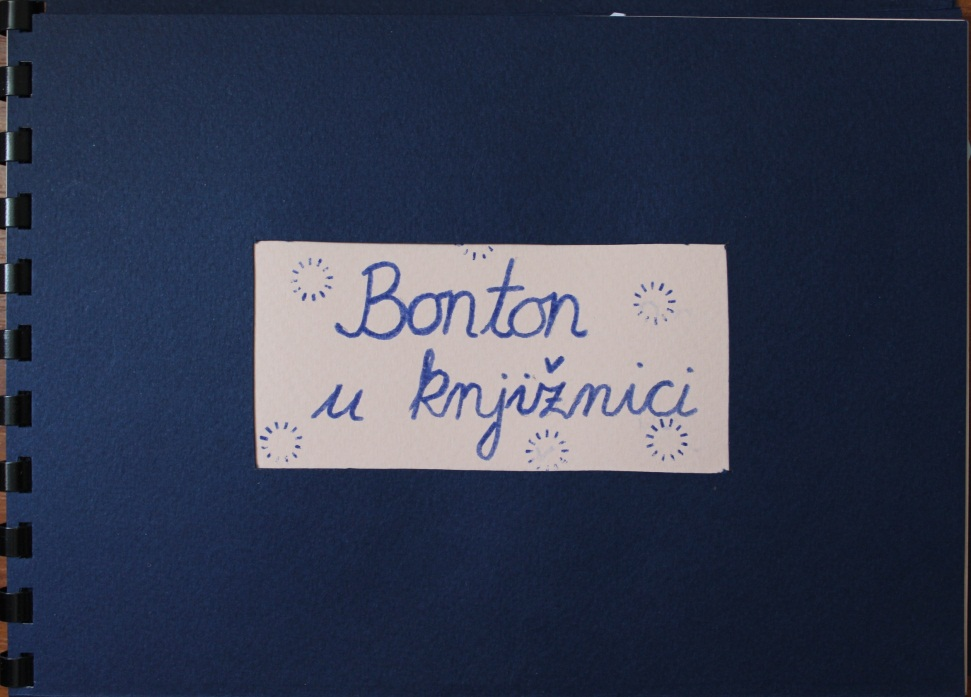 Bonton
u knjižnici